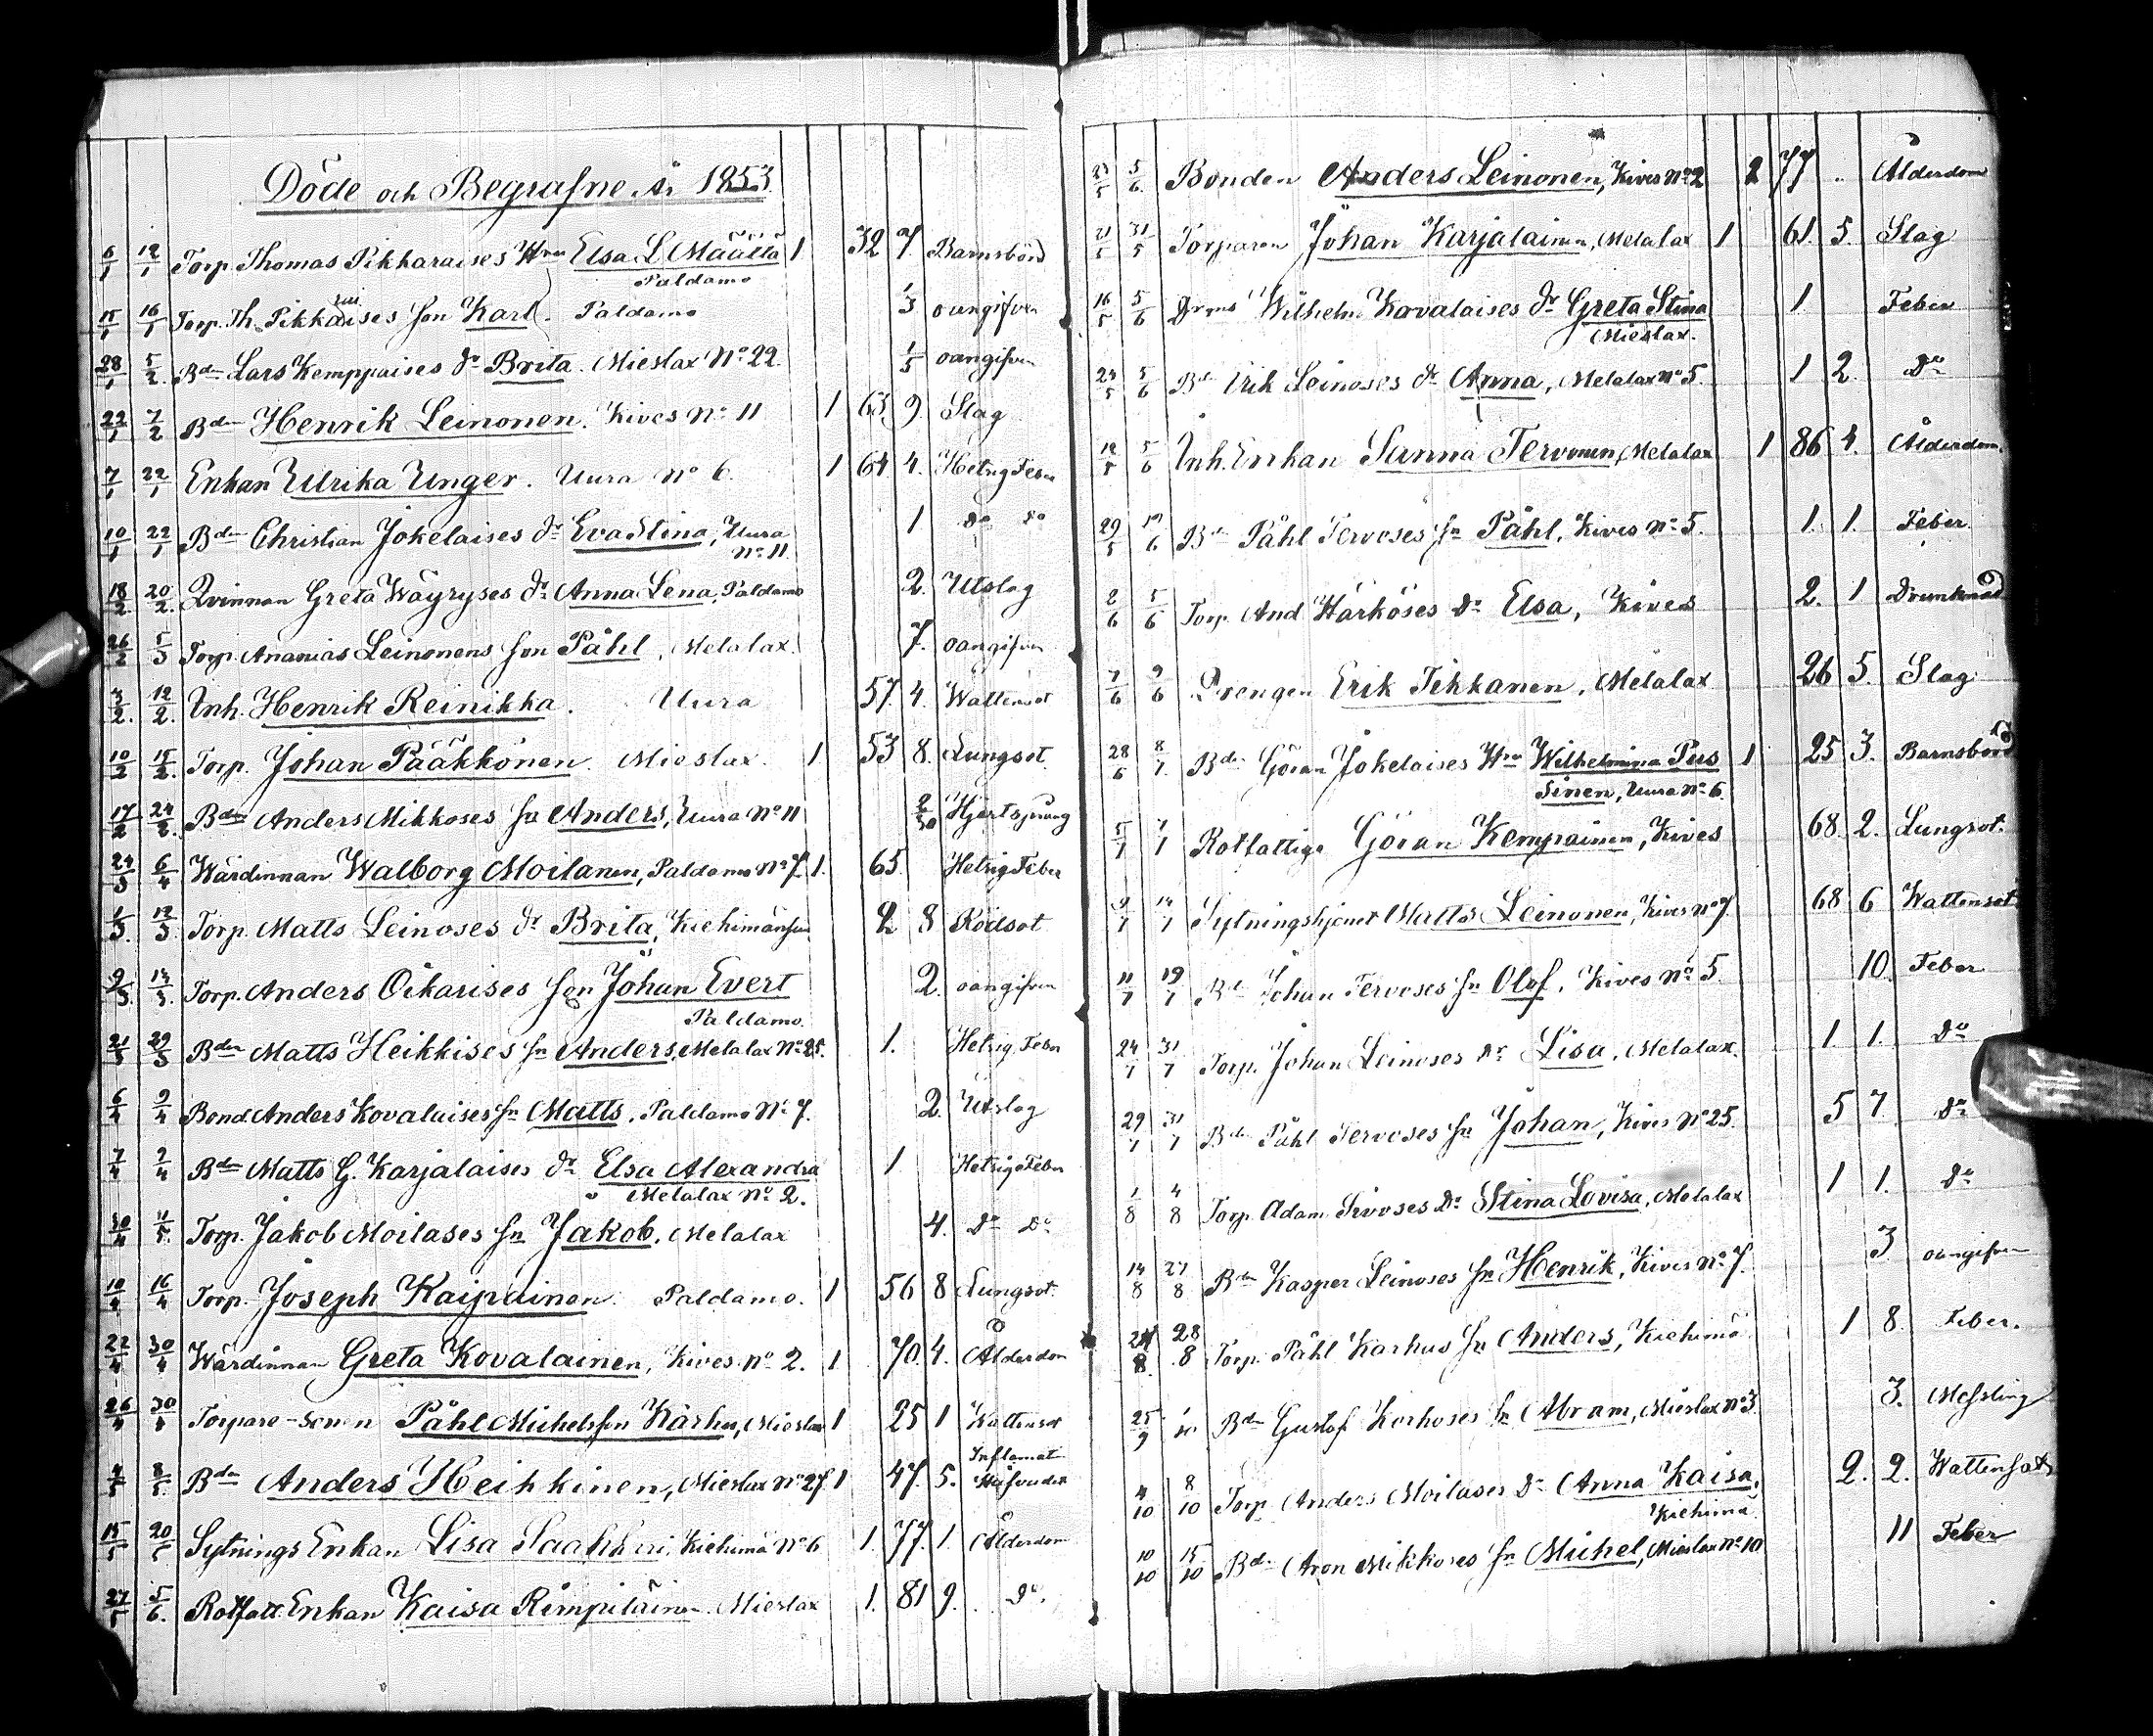 Döde och Begrafne År 1853.
6/1 12/1 Torp. Thomas Pikkaraises Hru Elsa L Määttä 1 32 7 Barnsbörd
Paldamo
15/1 16/1 Torp. Th. Pikkaraises Son Karl. Paldamo 1/3 oangifven
28/1 5/2 Bdn Lars Kemppaises dr Brita. Mieslax No 22. 1/5 oangifven
22/1 7/2 Bdn Henrik Leinonen. Kives No 11 1 63 9 Slag
7/1 22/1 Enkan Ulrika Unger. Uura No 6. 1 64 4. Hetsig Feber
10/1 22/1 Bdn Christian Jokelaises dr Eva Stina, Uura 1 do do
No 11.
18/2 20/2 Qvinnan Greta Wäyryses dr Anna Lena, Paldamo 2. Utslag
26/2 5/3 Torp. Ananias Leinonens Son Påhl, Melalax. 7. oangifven
3/2 12/2 Inh. Henrik Reinikka. Uura 57. 4. Wattensot
10/2 15/2 Torp. Johan Pääkkönen. Mieslax. 1 53 8. Lungsot.
17/2 24/2 Bdn Anders Mikkoses Sn Anders, Uura No 11 2/30 Hjertsprång
24/3 6/4 Wärdinnan Walborg Moilanen, Paldamo No 7. 1. 65. Hetsig Feber
1/3 12/3 Torp. Matts Leinoses dr Brita, Kiehimänsuu 2 8 Rödsot
9/3 13/3 Torp. Anders Oikarises Son Johan Evert 2. oangifven
Paldamo.
21/3 29/3 Bdn Matts Heikkises Sn Anders, Melalax No 25. 1. Hetsig Feber
6/4 9/4 Bond. Anders Kovalaises Sn Matts. Paldamo No 7. 2. Utslag
7/4 2/4 Bdn Matts G. Karjalaises dr Elsa Alexandra 1 Hetsig Feber
Melalax No 2.
30/4 11/5 Torp. Jakob Moilases Sn Jakob. Melalax 4. do do
10/4 16/4 Torp. Joseph Kaipainen. Paldamo. 1 56 8 Lungsot.
22/4 30/4 Wärdinnan Greta Kovalainen, Kives No 2. 1 70. 4. Ålderdom
26/4 30/4 Torpare-sonen Påhl Michelsson Karhu, Mieslax 1 25 1 Wattensot
4/5 8/5 Bdn Anders Heikkinen, Mieslax No 27. 1 47. 5. Inflamat. Hufvudet
15/5 20/5 Sytnings Enkan Lisa Laakkoi, Kiehimä No 6 1. 77. 1. Ålderdom
27/5 5/6 Rotfatt. Enkan Kaisa Rimpiläinen. Mieslax 1. 81 9. do.
23/5 5/6 Bonden Anders Leinonen, Kives No 2 2 77 " Ålderdom
21/5 31/5 Torparen Johan Karjalainen, Melalax 1 61. 5. Slag
16/5 5/6 Wilhelm Kovalaises dr Greta Stina 1 Feber
Mieslax.
24/5 5/6 Bdn Erik Leinoses dr Anna, Melalax No 5. 1 2. do
12/5 5/6 Inh. Enkan Sanna Tervonen, Melalax 1 86 4. Ålderdom.
29/5 /6 Bdn Påhl Tervoses Sn Påhl, Kives No 5. 1. 1. Feber.
2/6 5/6 Torp. And Härköses Dr Elsa, Kives 2. 1 Drunknad
7/6 9/6 Drengen Erik Tikkanen, Melalax 26 5. Slag
28/6 8/7 Bdn Göran Jokelaises Hru Wilhelmina Pus 1 25 3. Barnsbörd
sinen, Uura No 6.
5/7 7/7 Rotfattige Göran Kempainen, Kives 68. 2. Lungsot.
9/7 14/7 Sytningshjonet Matts Leinonen, Kives No 7. 68 6 Wattensot
11/7 19/7 Bd Johan Tervoses Sn Olof, Kives No 5. 10. Feber
24/7 31/7 Torp. Johan Leinoses Dr Lisa, Melalax. 1. 1. do
29/7 31/7 Bdn Påhl Tervoses Sn Johan, Kives No 25. 5 7. do
1/8 4/8 Torp. Adam Sivoses Dr Stina Lovisa, Melalax 1 1. do
14/8 27/8 Bdn Kasper Leinoses Sn Henrik, Kives No 7. 3 oangifven
24/8 28/8 Torp. Påhl Karhus Sn Anders, Kiehimä 1 8. Feber.
25/9 1/10 Bdn Gustaf Korhoses Sn Abram, Mieslax No 3. 3. Messling
4/10 8/10 Torp. Anders Moilases Dr Anna Kaisa, 2. 2. Wattensot
Kiehimä.
10/10 15/10 Bdn Aron Mikkoses Sn Michel, Mieslax No 10 11 Feber